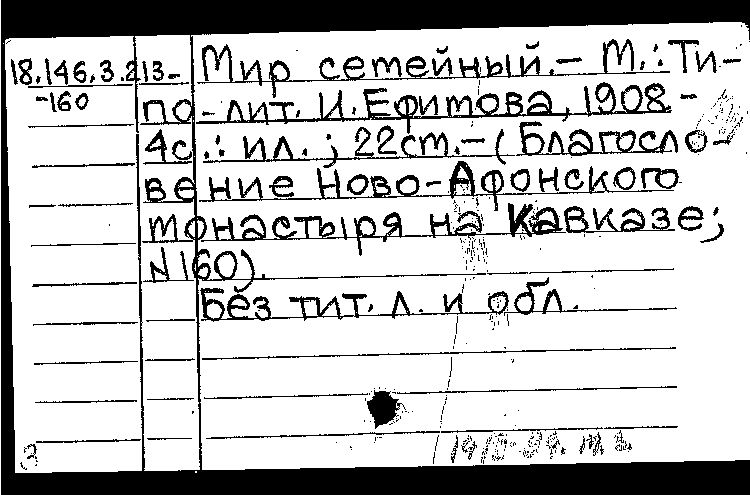 18.146.3.213-
-160
Мир семейный.– М.: Ти-
по-лит. И. Ефимова, 1908.-
4с.: ил.; 22см.–(Благосло-
вение Ново-Афонского
монастыря на Кавказе;
N160).
Без тит. л. и обл.
3